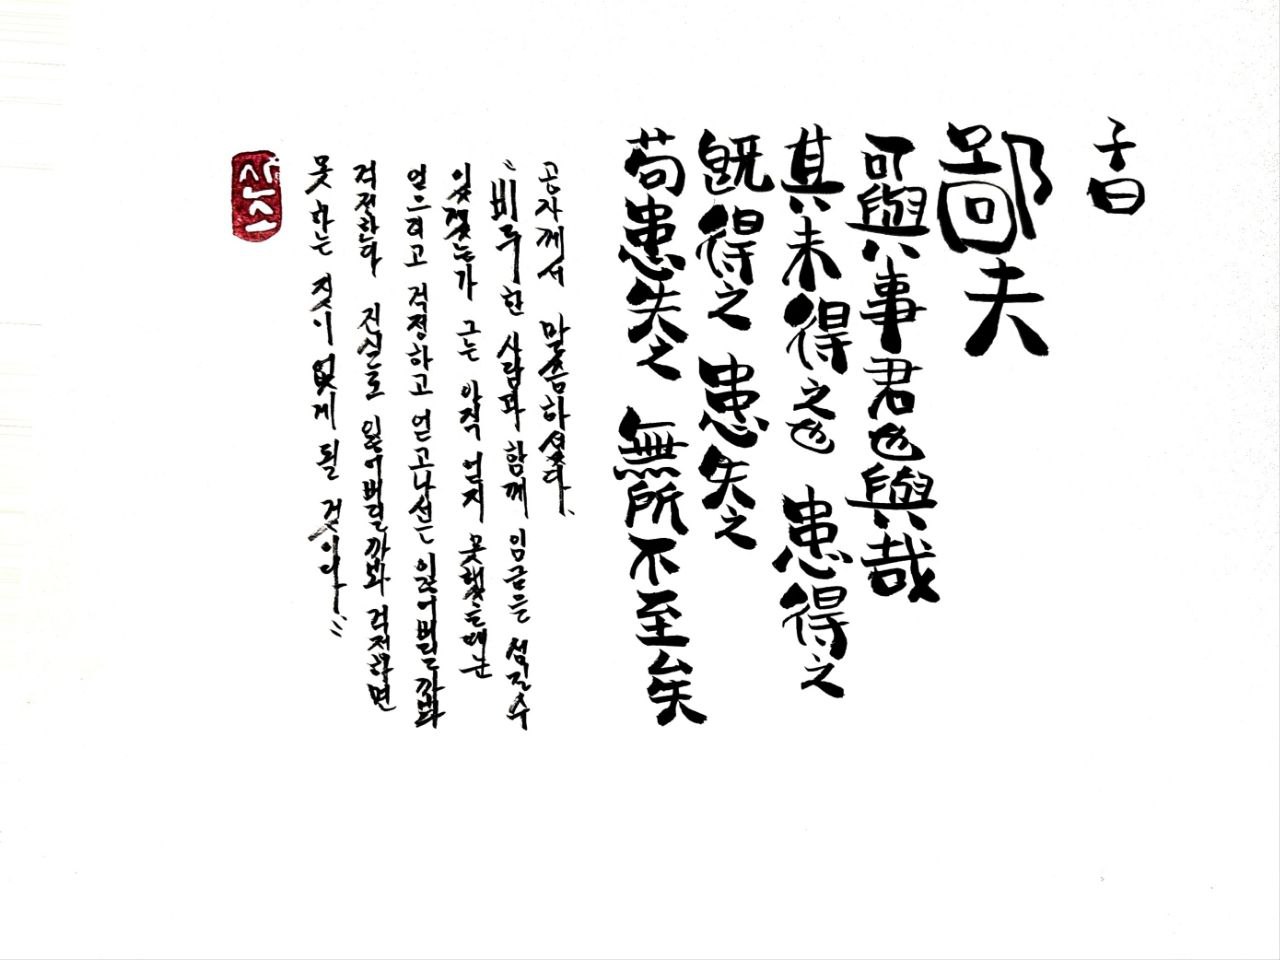 子曰
鄙夫
可與事君也與哉
其未得之也 患得之
旣得之 患失之
苟患失之 無所不至矣
공자께서 말씀하셨다.
"비루한 사람과 함께 임금을 섬길수
있겠는가 그는 아직 얻지 못했을때는
얻으려고 걱정하고 얻고나선는 잃어버릴까봐
걱정한다 진실로 잃어버릴까봐 걱정하면
못하는 짓이 없게 될 것이다."
산소